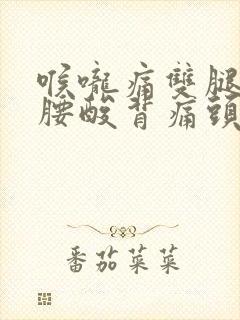 喉嚨痛雙腿
腰酸背痛頭
番茄菜菜